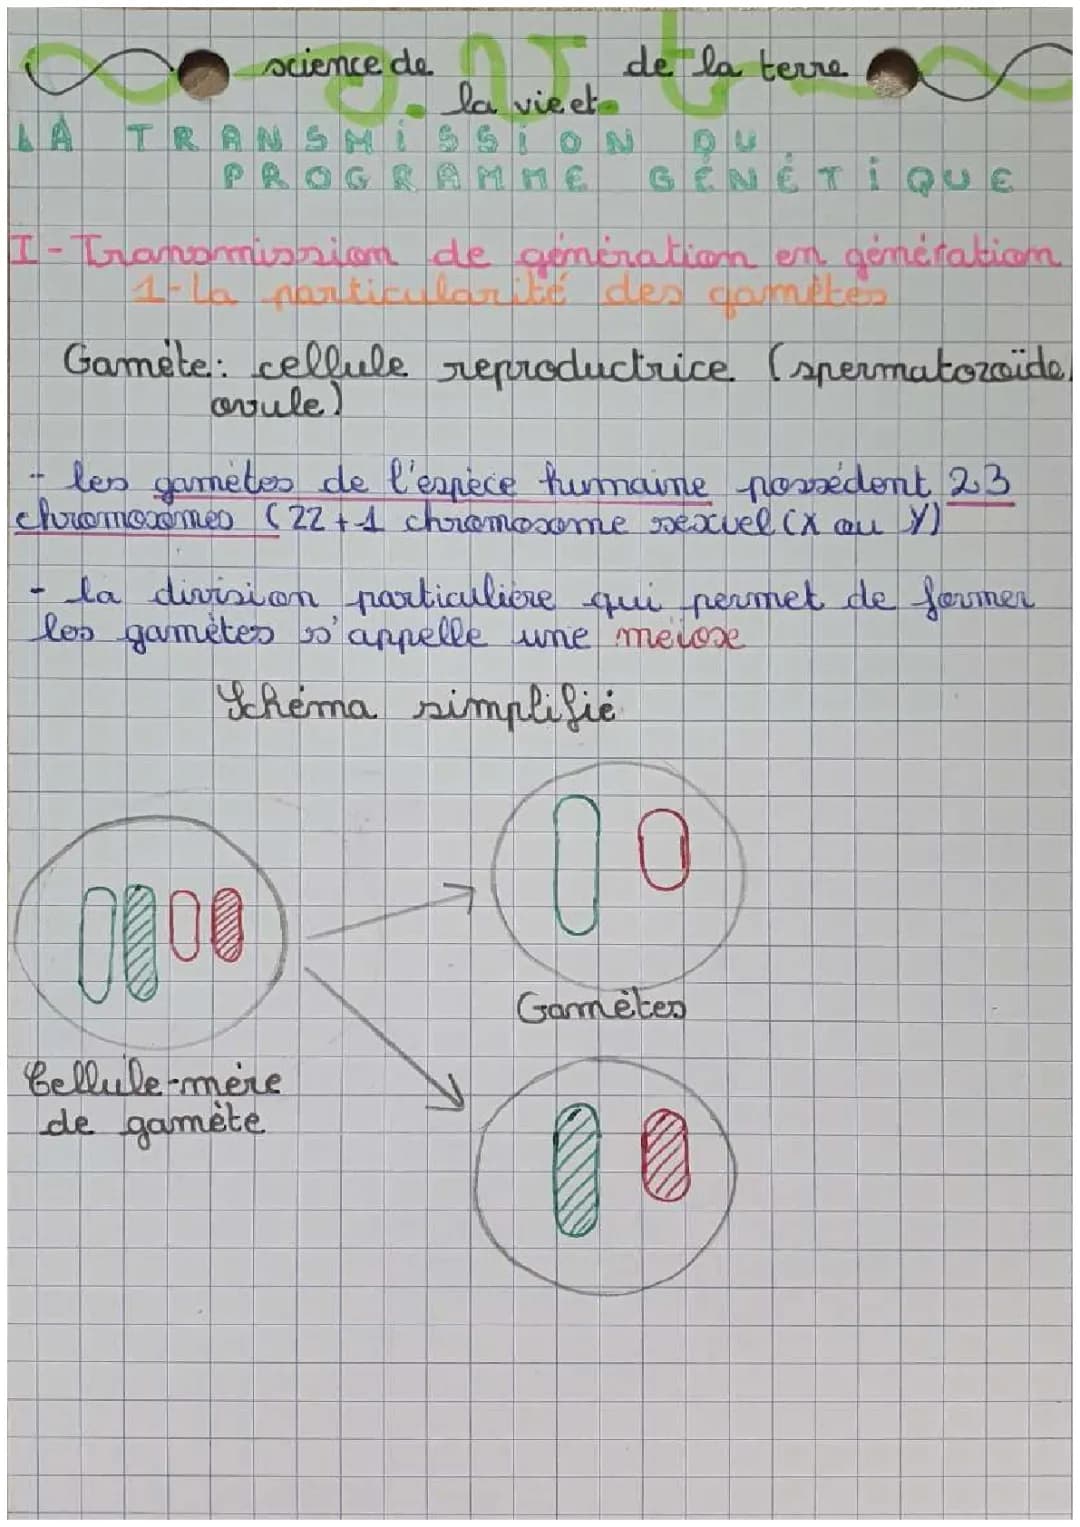 S.V.t
science de la vie et de la terre
LA TRANSMISSION DU
PROGRAMME GÉNÉTIQUE
I-Transmission de génération en génération
1-la particularité des gamètes
Gamète: cellule reproductrice (spermatozoïde,
ovule)
- les gamètes de l'espèce humaine possèdent 23
chromosomes (22+1 chromosome sexuel (X ou Y)
- la division particulière qui permet de former
les gamètes s'appelle une meiose
Schéma simplifié
Gamètes
Cellule-mère
de gamète